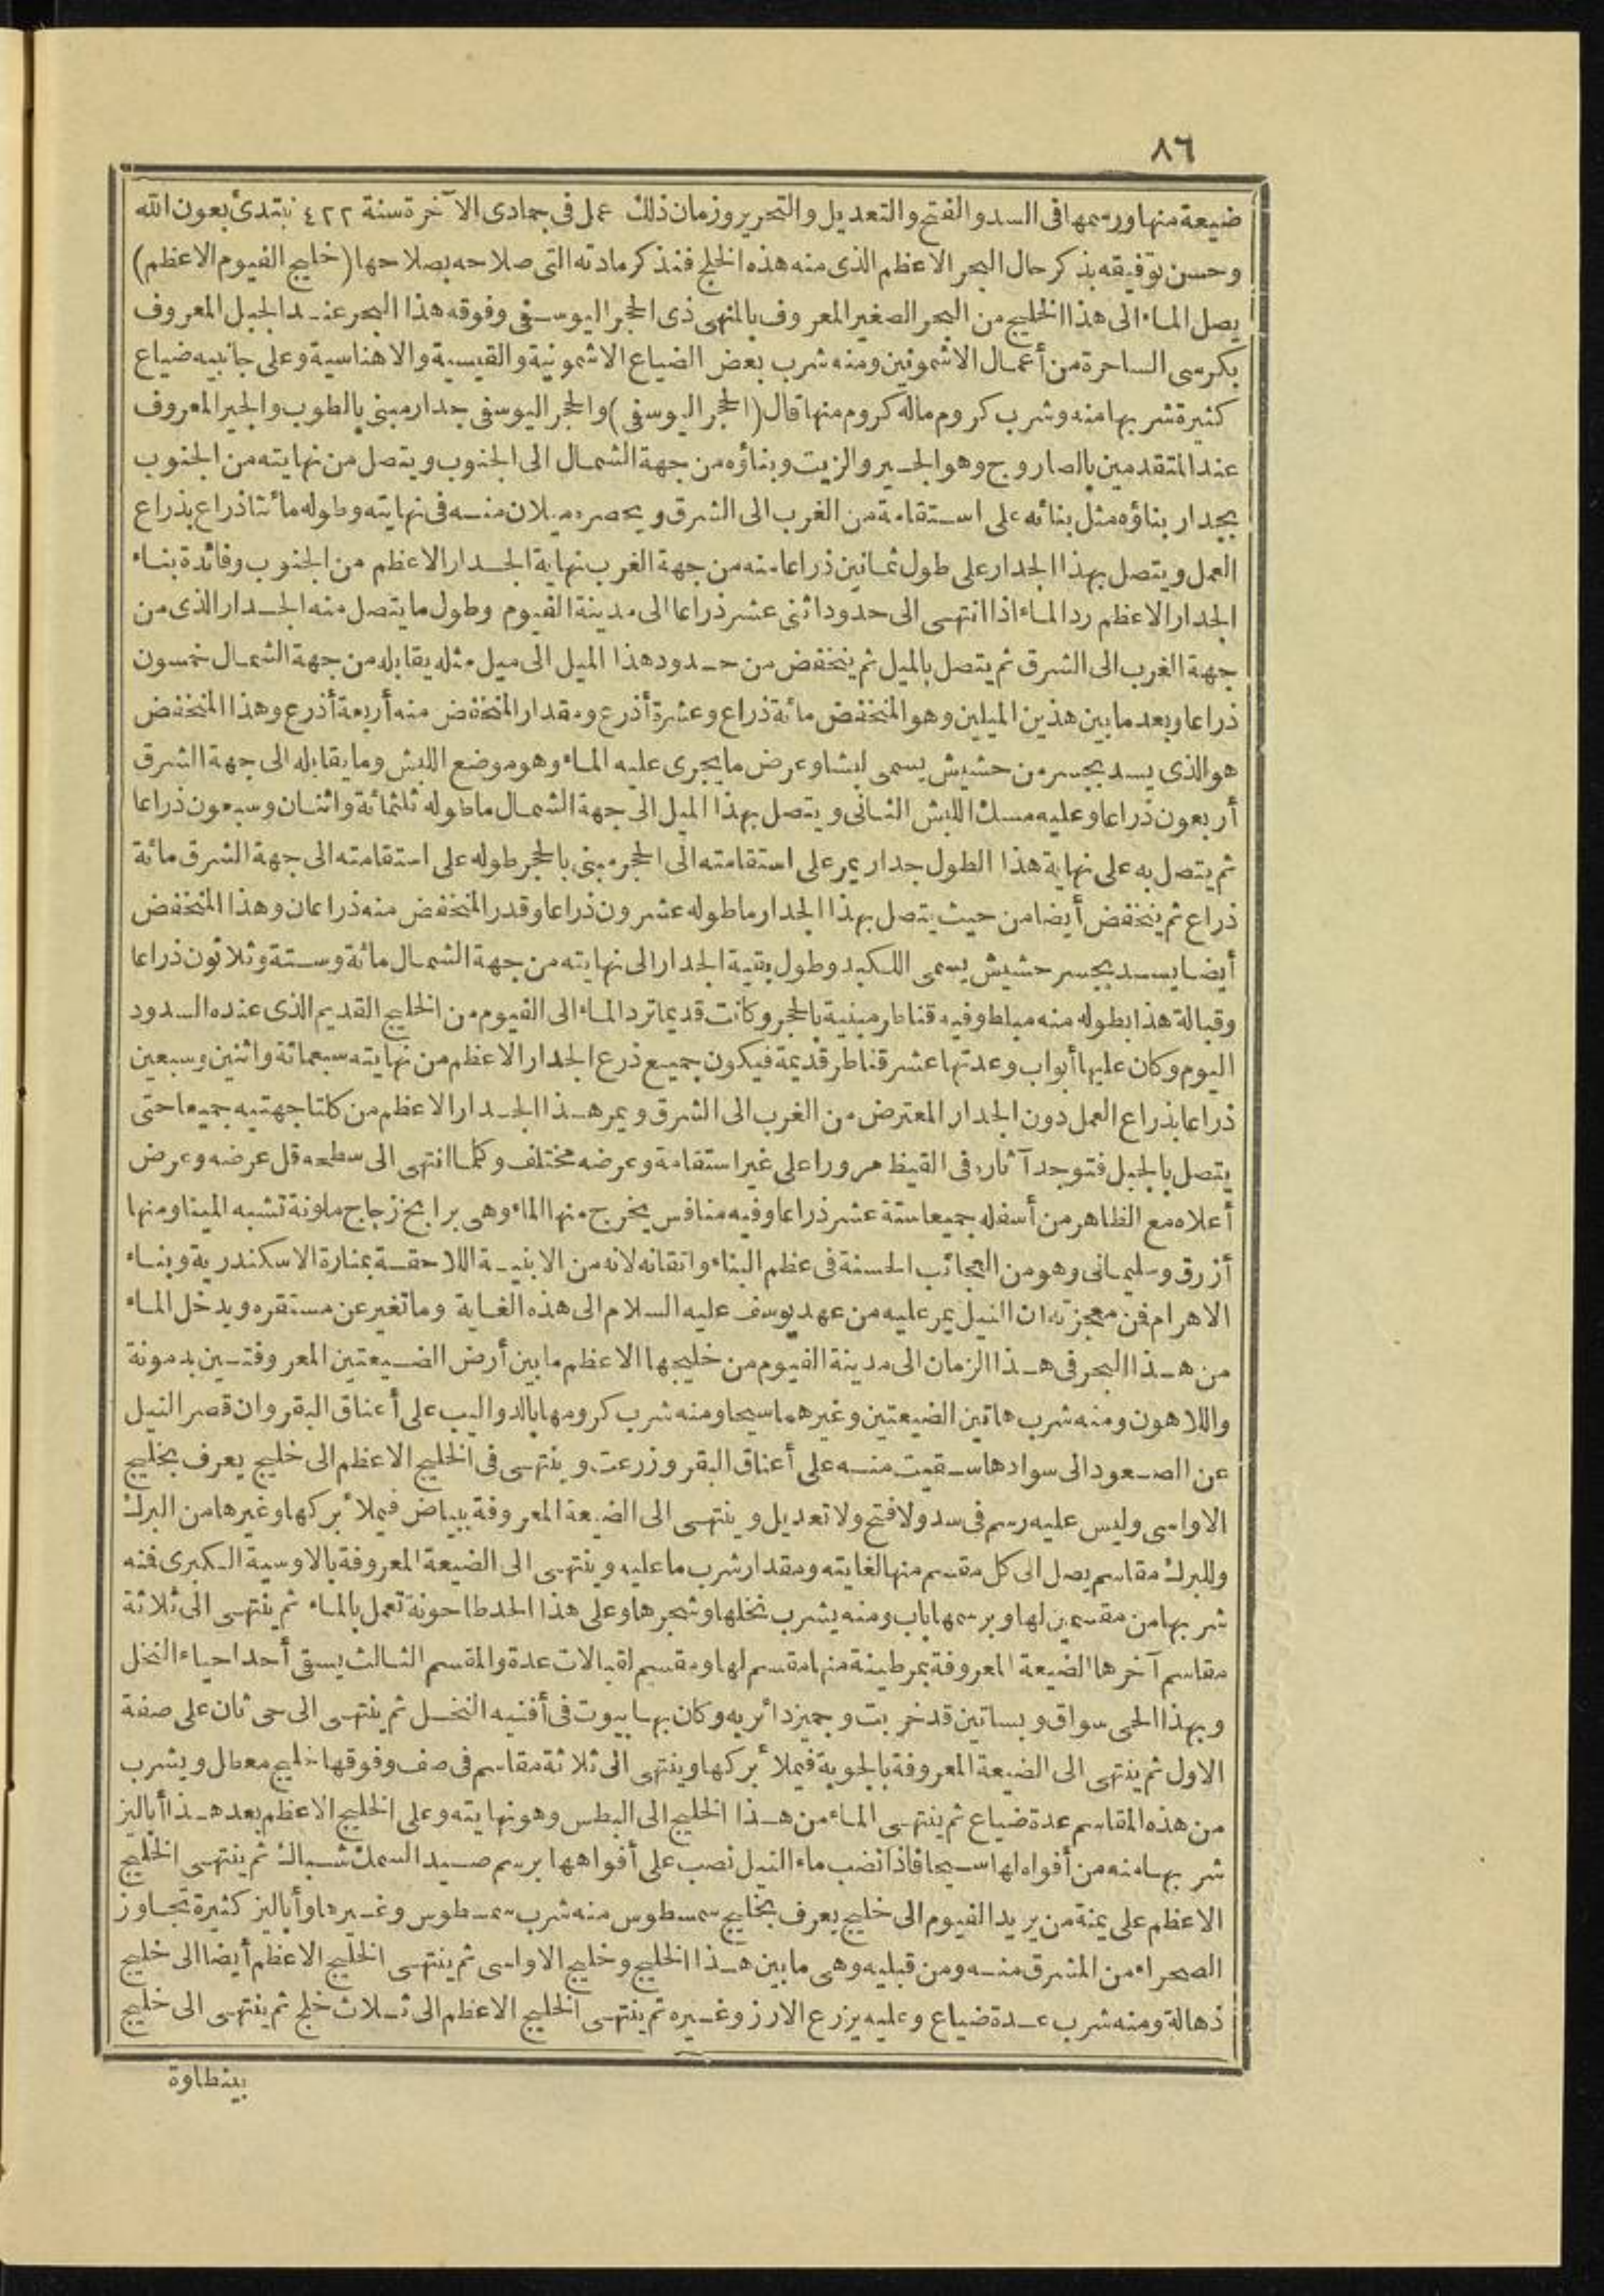 ٨٦
ضيعة منها ورسمها فى السد والفتح والتعديل والتحرير وزمان ذلك عمل فى جمادى الآخرة سنة ٤٢٢ نبتدئ بعون الله
وحسن توفيقه بذكر حال البحر الاعظم الذى منه هذه الخلج فنذكر مادته التى صلاحه بصلاحها (خليج الفيوم الاعظم)
يصل الماء الى هذا الخليج من البحر الصغير المعروف بالمنهى ذى الحجر اليوسفى وفوقه هذا البحر عند الجبل المعروف
بكرسى الساحرة من أعمال الاشمونين ومنه شرب بعض الضياع الاشمونية والقيسية والاهناسية وعلى جانبيه ضياع
كثيرة شربها منه وشرب كروم ماله كروم منها قال (الحجر اليوسفى) والحجر اليوسفى جدار مبنى بالطوب والجير المعروف
عند المتقدمين بالصاروج وهو الجير والزيت وبناؤه من جهة الشمال الى الجنوب ويتصل من نهايته من الجنوب
بجدار بناؤه مثل بنائه على استقامة من الغرب الى الشرق ويحصره ميلان منه فى نهايته وطوله مائتا ذراع بذراع
العمل ويتصل بهذا الجدار على طول ثمانين ذراعا منه من جهة الغرب نهاية الجدار الاعظم من الجنوب وفائدة بناء
الجدار الاعظم رد الماء اذا انتهى الى حدود اثنى عشر ذراعا الى مدينة الفيوم وطول ما يتصل منه الجدار الذى من
جهة الغرب الى الشرق ثم يتصل بالميل ثم ينخفض من حدود هذا الميل الى ميل مثله يقابله من جهة الشمال خمسون
ذراعا وبعد ما بين هذين الميلين وهو المنخفض مائة ذراع وعشرة أذرع ومقدار المنخفض منه أربعة أذرع وهذا المنخفض
هو الذى يسد بجسر من حشيش يسمى لبشا وعرض ما يجرى عليه الماء وهو موضع اللبش وما يقابله الى جهة الشرق
أربعون ذراعا وعليه مسك اللبش الثانى ويتصل بهذا الميل الى جهة الشمال ما طوله ثلثمائة واثنان وسبعون ذراعا
ثم يتصل به على نهاية هذا الطول جدار يمر على استقامته الى الحجر مبنى بالحجر طوله على استقامته الى جهة الشرق مائة
ذراع ثم ينخفض أيضا من حيث يتصل بهذا الجدار ما طوله عشرون ذراعا وقدر المنخفض منه ذراعان وهذا المنخفض
أيضا يسد بجسر حشيش يسمى اللكيد وطول بقية الجدار الى نهايته من جهة الشمال مائة وستة وثلاثون ذراعا
وقبالة هذا بطوله منه مباطو فيه قناطر مبنية بالحجر وكانت قديما ترد الماء الى الفيوم من الخليج القديم الذى عنده السدود
اليوم وكان عليها أبواب وعدتها عشر قناطر قديمة فيكون جميع ذرع الجدار الاعظم من نهايته سبعمائة واثنين وسبعين
ذراعا بذراع العمل دون الجدار المعترض من الغرب الى الشرق ويمر هذا الجدار الاعظم من كلتا جهتيه جميعا حتى
يتصل بالجبل فتوجد آثاره فى القيظ مرورا على غير استقامة وعرضه مختلف وكلما انتهى الى سطحه قل عرضه وعرض
أعلاه مع الظاهر من أسفله جميعا ستة عشر ذراعا وفيه منافس يخرج منها الماء وهى برابخ زجاج ملونة تشبه المينا ومنها
أزرق وسليمانى وهو من العجائب الحسنة فى عظم البناء واتقانه لانه من الابنية اللاحقة بمنارة الاسكندرية وبناء
الاهرام فمن معجزته ان النيل يمر عليه من عهد يوسف عليه السلام الى هذه الغاية وما تغير عن مستقره ويدخل الماء
من هذا البحر فى هذا الزمان الى مدينة الفيوم من خليجها الاعظم ما بين أرض الضيعتين المعروفتين بدمونة
واللاهون ومنه شرب هاتين الضيعتين وغيرهما سيحا ومنه شرب كرومها بالدواليب على أعناق البقر وان قصر النيل
عن الصعود الى سوادها سقيت منه على أعناق البقر وزرعت وينتهى فى الخليج الاعظم الى خليج يعرف بخليج
الاواسى وليس عليه رسم فى سد ولا فتح ولا تعديل وينتهى الى الضيعة المعروفة ببياض فيملأ بركها وغيرها من البرك
وللبرك مقاسم يصل الى كل مقسم منها لغايته ومقدار شرب ما عليه وينتهى الى الضيعة المعروفة بالاوسية الكبرى فمنه
شربها من مقسمين لها وبرسمها باب ومنه يشرب نخلها وشجرها وعلى هذا الحد طاحونة تعمل بالماء ثم ينتهى الى ثلاثة
مقاسم آخرها الضيعة المعروفة بمرطينة منها مقسم لها ومقسم لقبالات عدة والمقسم الثالث يسقى أحد احياء النخل
وبهذا الحى سواق وبساتين قد خربت وجميز دائر به وكان بها بيوت فى أفنيه النخل ثم ينتهى الى حى ثان على صفة
الاول ثم ينتهى الى الضيعة المعروفة بالجوبة فيملأ بركها وينتهى الى ثلاثة مقاسم فى صف وفوقها خليج معطل ويشرب
من هذه المقاسم عدة ضياع ثم ينتهى الماء من هذا الخليج الى البطس وهو نهايته وعلى الخليج الاعظم بعد هذا أباليز
شربها منه من أفواه لها سيحا فاذا نضب ماء النيل نصب على أفواهها برسم صيد السمك شباك ثم ينتهى الخليج
الاعظم على يمنة من يريد الفيوم الى خليج يعرف بخليج سمسطوس منه شرب سمسطوس وغيرها وأباليز كثيرة تجاوز
الصحراء من المشرق منه ومن قبليه وهى ما بين هذا الخليج وخليج الاواسى ثم ينتهى الخليج الاعظم أيضا الى خليج
ذهالة ومنه شرب عدة ضياع وعليه يزرع الارز وغيره ثم ينتهى الخليج الاعظم الى ثلاث خلج ثم ينتهى الى خليج
بينطاوة